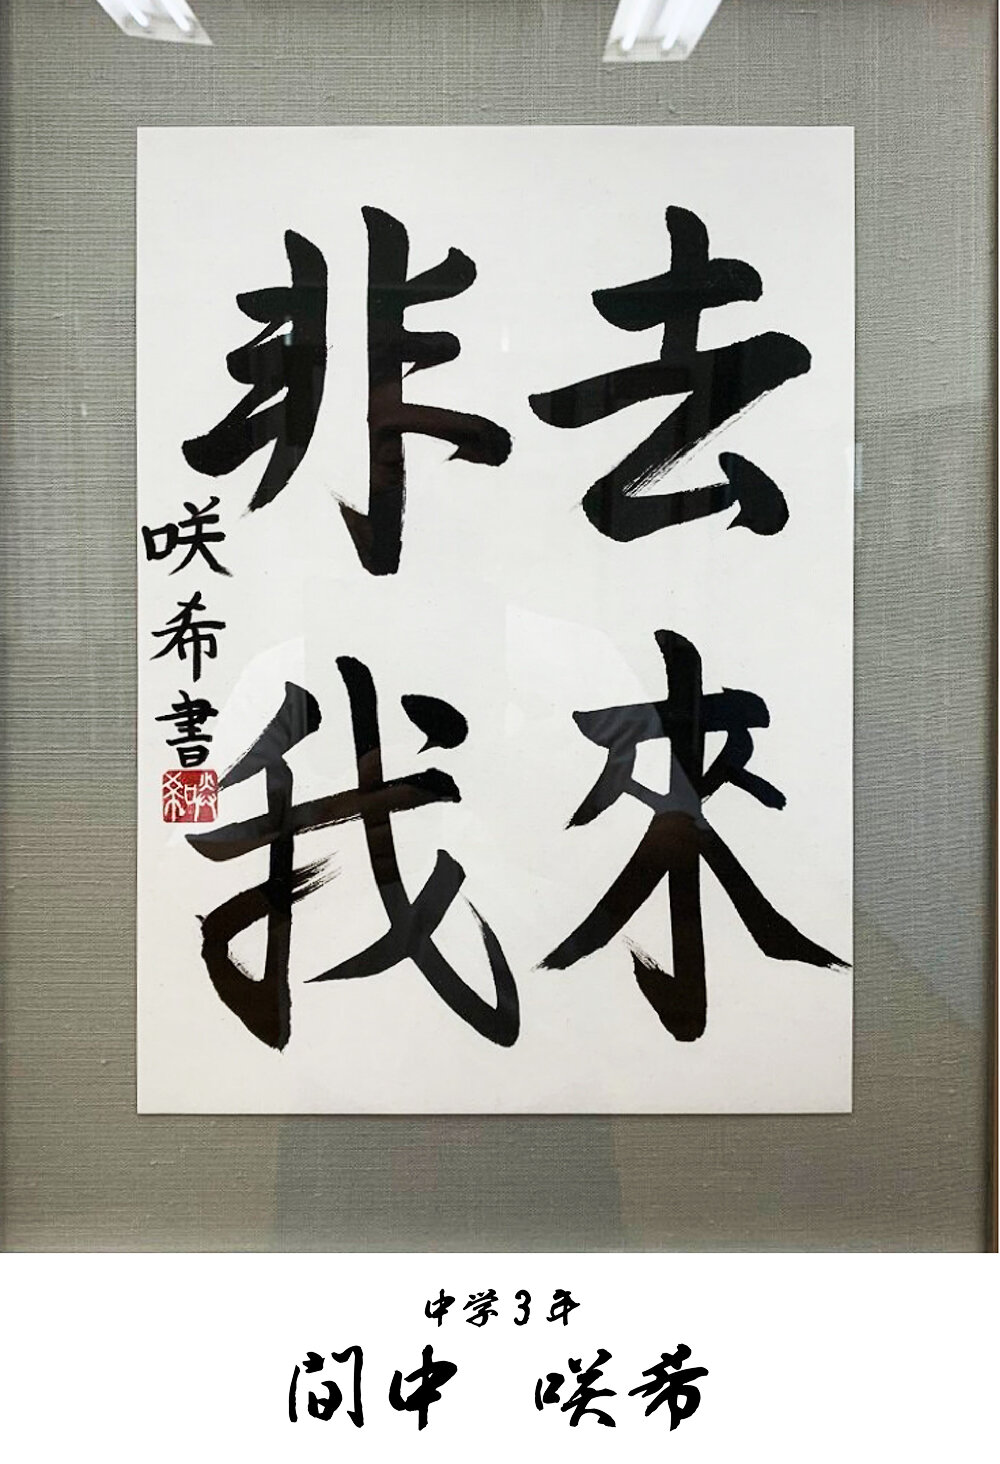 去來
非我
咲希書
咲希
中学3年
間中 咲希